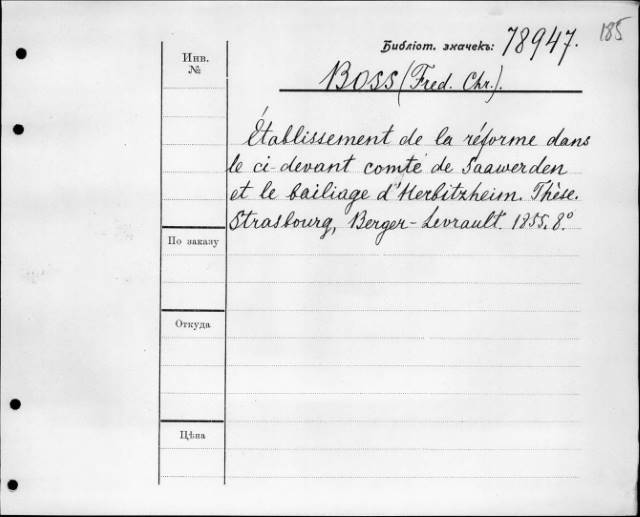 185
Библіот. значекъ: 78947.
Инв. №
Boss (Fred. Chr.).
Établissement de la réforme dans
le ci-devant comté de Saawerden
et le bailiage d'Herbitzheim. Thèse.
Strasbourg, Berger-Levrault. 1855. 8º
По заказу
Откуда
Цѣна